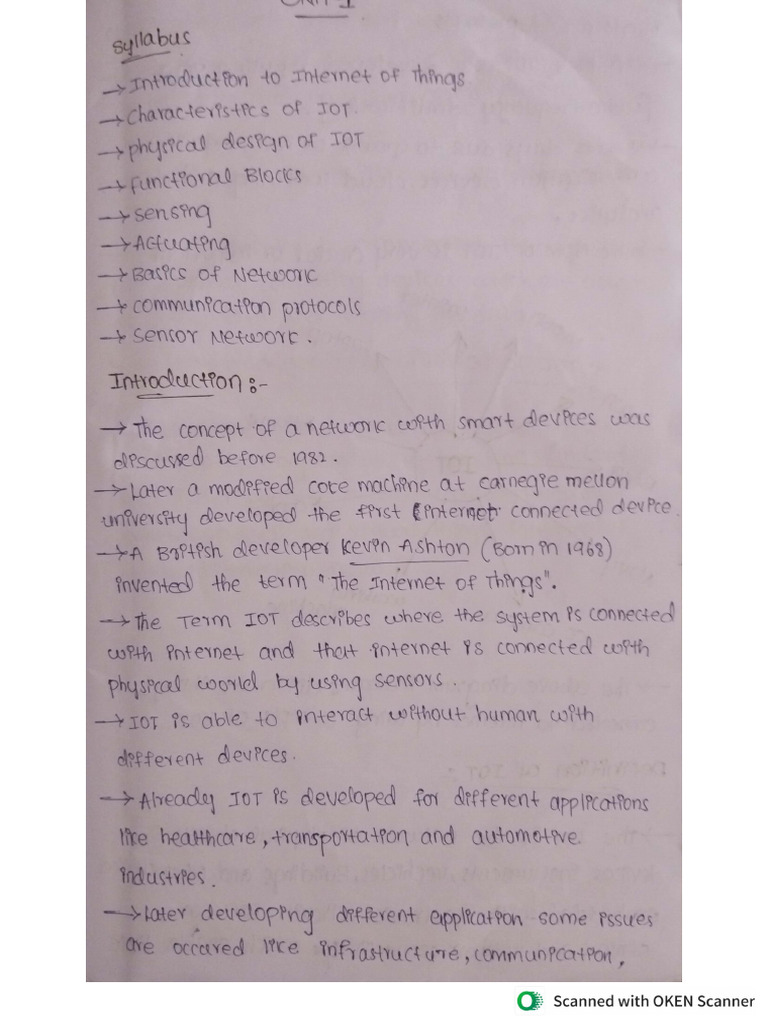 UNIT-1
Syllabus
→ Introduction to Internet of Things
→ Characteristics of IOT.
→ physical design of IOT
→ Functional Blocks
→ Sensing
→ Actuating
→ Basics of Network
→ communication protocols
→ Sensor Network.
Introduction:-
→ The concept of a network with smart devices was
discussed before 1982.
→ Later a modified coke machine at carnegie mellon
university developed the first internet connected device.
→ A British developer Kevin Ashton (Born in 1968)
invented the term "The Internet of Things".
→ The Term IOT describes where the system is connected
with internet and that internet is connected with
physical world by using sensors.
→ IOT is able to interact without human with
different devices.
→ Already IOT is developed for different applications
like healthcare, transportation and automotive
industries.
→ Later developing different application some issues
are occared like infrastructure, communication,
Scanned with OKEN Scanner